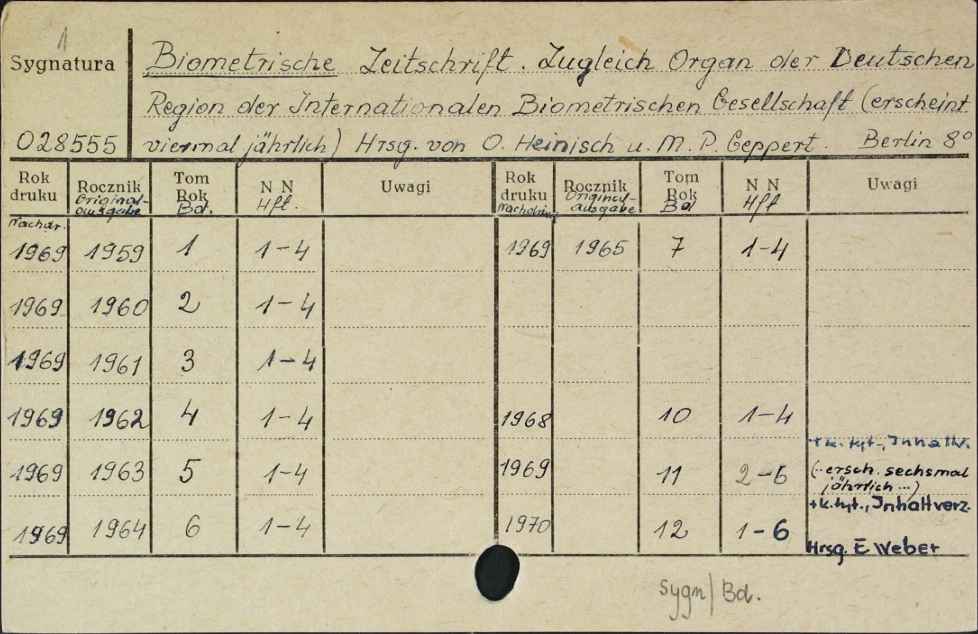 1
Sygnatura
Biometrische Zeitschrift. Zugleich Organ der Deutschen
Region der Internationalen Biometrischen Gesellschaft (erscheint
028555 viermal jährlich) Hrsg. von O. Heinisch u. M. P. Geppert. Berlin 8°
Rok druku Rocznik Original-ausgabe Tom Rok Bd. N N Hft. Uwagi Rok druku Rocznik Original-ausgabe Tom Rok Bd N N Hft Uwagi
Nachdr.
1969 1959 1 1-4 1969 1965 7 1-4
1969 1960 2 1-4
1969 1961 3 1-4
1969 1962 4 1-4 1968 10 1-4
+ k. tyt., Inhaltv.
1969 1963 5 1-4 1969 11 2-6 (..ersch. sechsmal
jährlich...)
+k.tyt., Inhaltverz.
1969 1964 6 1-4 1970 12 1-6
Hrsg. E Weber
Sygn/Bd.